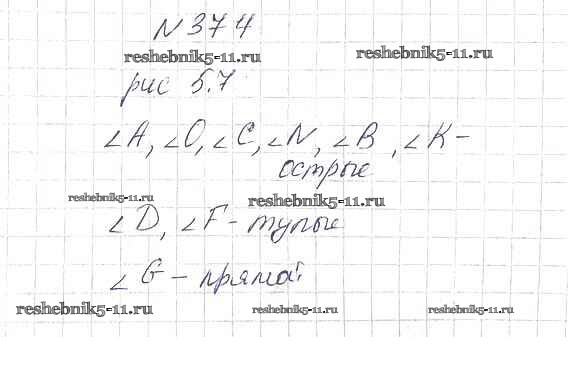 № 374
reshebnik5-11.ru reshebnik5-11.ru
рис 5.7
∠A, ∠O, ∠C, ∠N, ∠B, ∠K -
острые
reshebnik5-11.ru reshebnik5-11.ru
∠D, ∠F - тупые
∠G - прямой
reshebnik5-11.ru reshebnik5-11.ru reshebnik5-11.ru